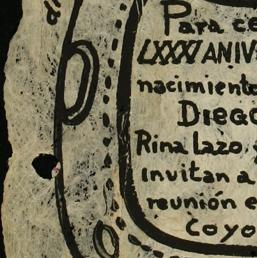 Para ce
LXXXI ANIV
nacimiento
DIEGO
Rina Lazo y
invitan a
reunión e
Coyo